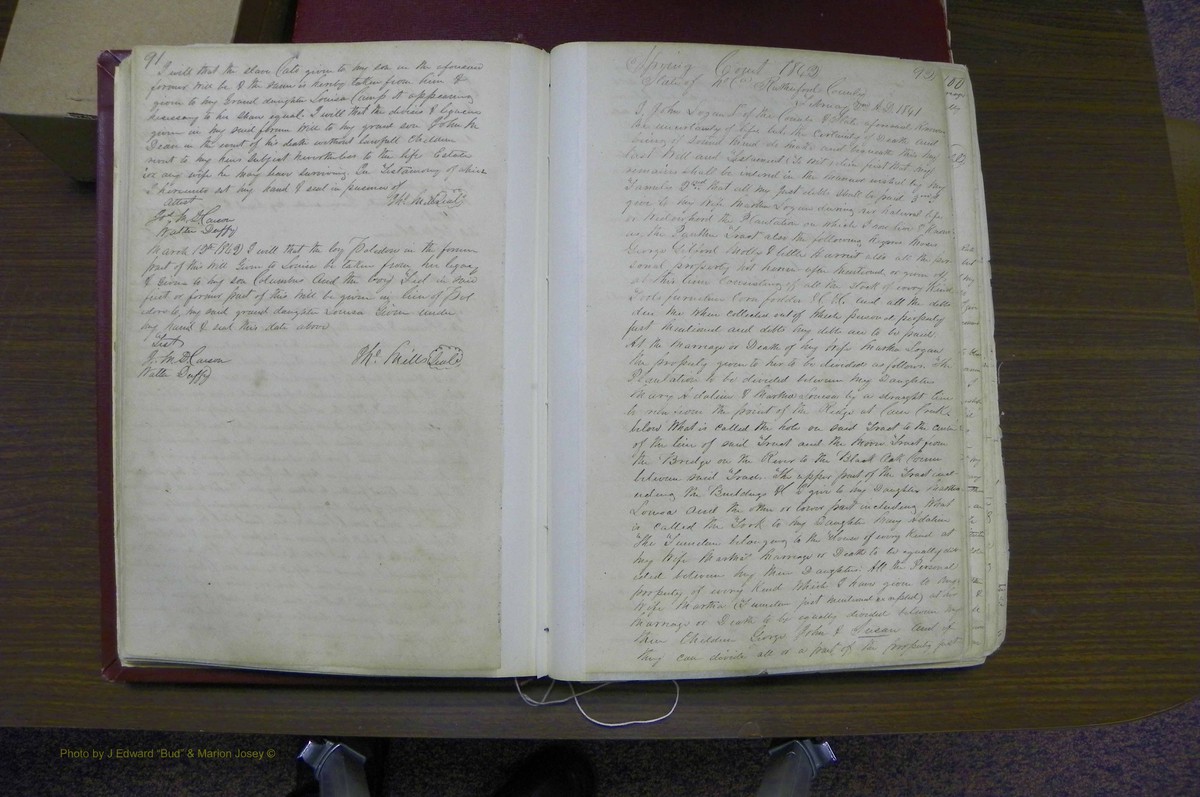 91
I will that the slave Cate given to my son in the aforesaid
former Will be & the same is hereby taken from him &
given to my Grand daughter Louisa Camp it appearing
necessary to her share equal. I will that the devises & legacies
given in my said former Will to my grand son John M
Dean in the event of his death without lawfull Children
revert to my heirs Subject nevertheless to the life Estate
in any wife he may have surviving In Testamony of which
I hereunto set my hand & seal in presence of
Attest
Jos M D Carson
Walter Duffy
March 1st 1842 I will that the boy Polidore in the former
part of this Will Given to Louisa be taken from her legacy
& given to my son Columbus And the boy in said
first or former part of this Will be given in lieu of Pol
adore to my said grand daughter Louisa Given under
my hand & seal this date above
Test
J. M D Carson
Walter Duffy
Ths Mills Seal
Spring Court 1842
92
State of N.C. Rutherford County
A.D. 1841
I, John Logan of the County & State aforesaid Knowing
the uncertainty of life but the certainty of Death and
being of sound mind do make and this my
last Will and Testament To wit I desire first that my
remains shall be interred in the manner wished by my
Family 2nd that all my just debts shall be paid
give to my Wife Martha Logan during her natural life
or Widowhood the Plantation on which I now live & known
as the Tract also the following Negroes
George & little Harriet also all the per
sonal property not herein after mentioned or given off
at this time consisting of all the Stock of every kind
Tools furniture Corn fodder &C &C and all the debts
due me when collected out of which personal property
just mentioned and debts my debts are to be paid.
At the Marriage or Death of my Wife Martha Logan
the property given to her to be divided as follows. The
Plantation to be divided between my Daughters
Mary Adaline & Martha Louisa by a straight line
to run from the point of the Ridge at
below What is called the hole on said Tract to the
of the line of said Tract and the Tract from
the Bridge on the River to the Black Oak Corner
between said Tracts. The upper part of the Tract incl
uding the Buildings &C I give to my Daughter Martha
Louisa and the other or lower part including What
is called the to my Daughter Mary Adaline
The Furniture belonging to the House of every kind at
my Wife Marthas Marriage or Death to be equally div
ided between my Daughters. All the Personal
property of every kind Which I have given to my
Wife Martha (Furniture just mentioned excepted) at her
Marriage or Death to be equally divided between my
three Children George John & Susan And if
they can divide all or a part of the property just
Photo by J Edward “Bud” & Marion Josey ©